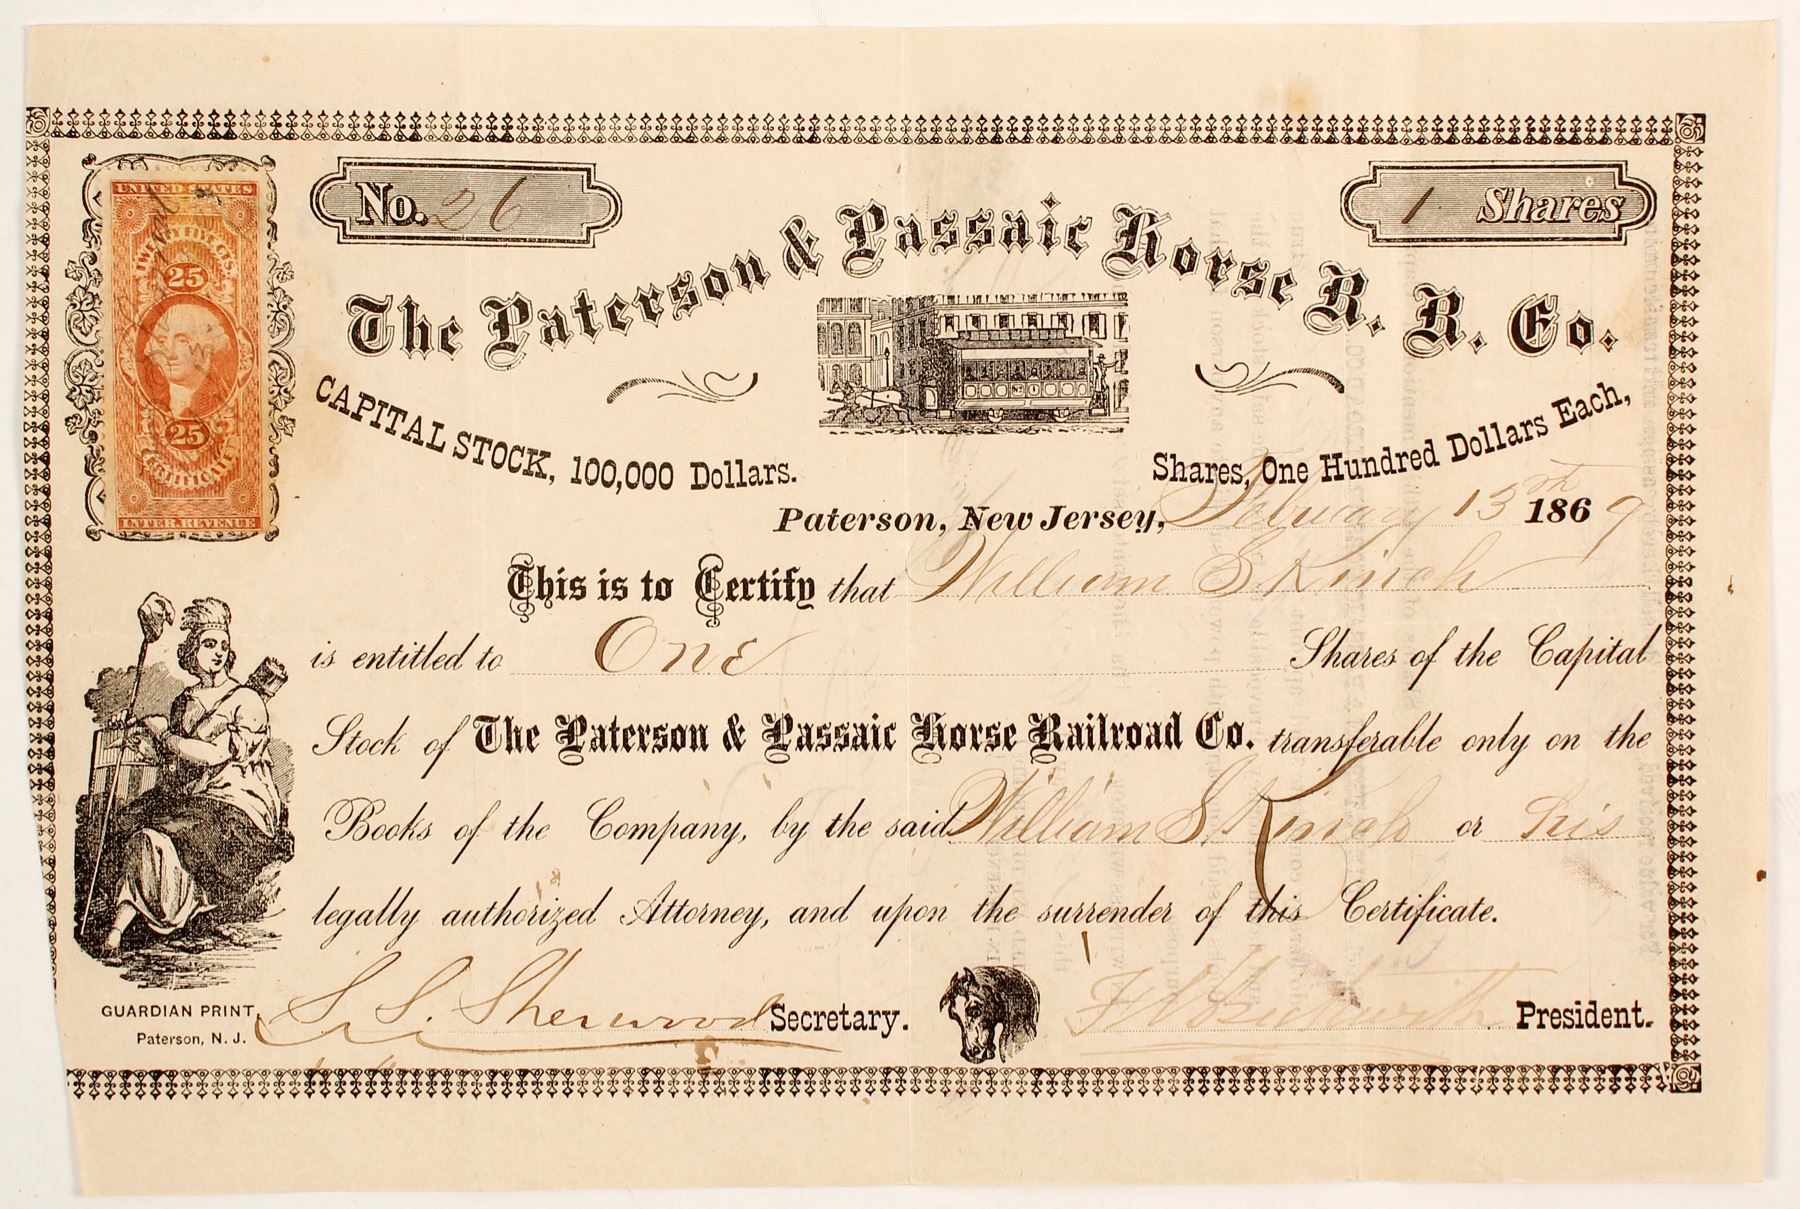 UNITED STATES
TWENTY FIVE CTS.
25
25
CERTIFICATE
INTER. REVENUE
No. 26
1 Shares
The Paterson & Passaic Horse R. R. Co.
CAPITAL STOCK, 100,000 Dollars.
Shares, One Hundred Dollars Each,
Paterson, New Jersey, February 13th 1869
This is to Certify that William S Kinch
is entitled to One Shares of the Capital
Stock of The Paterson & Passaic Horse Railroad Co. transferable only on the
Books of the Company, by the said William S. Kinch or his
legally authorized Attorney, and upon the surrender of this Certificate.
S. S. Sherwood Secretary.
President.
GUARDIAN PRINT,
Paterson, N. J.